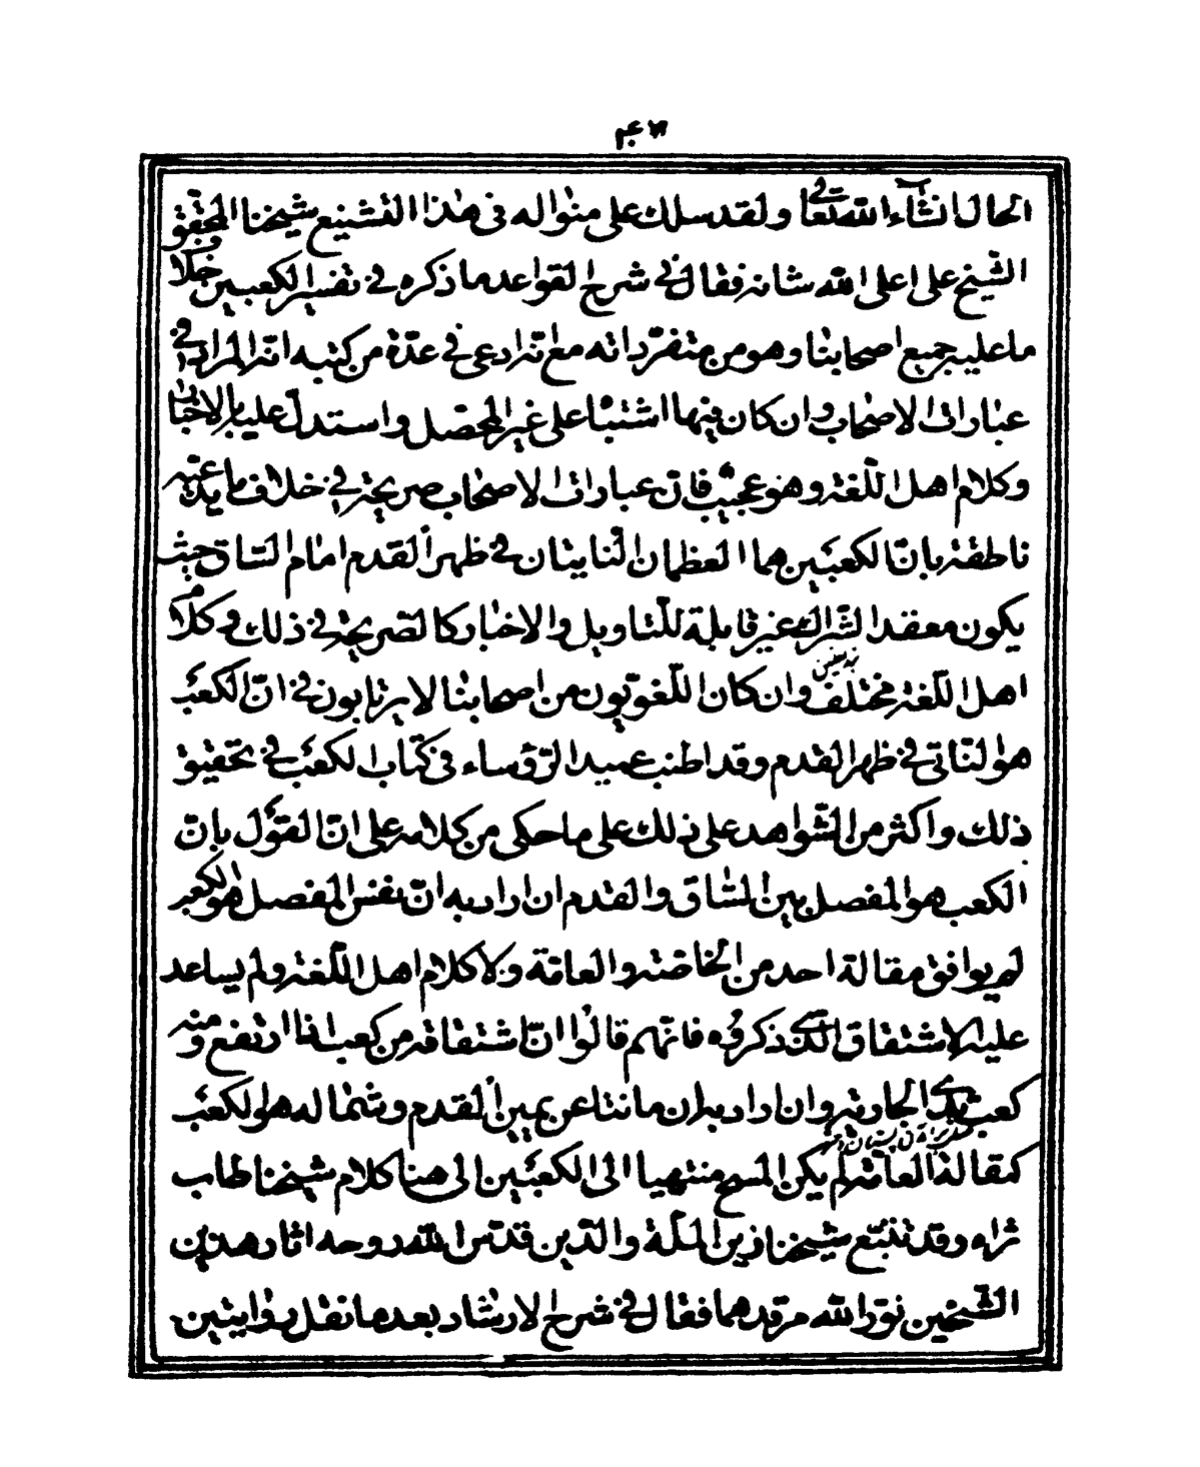 الحال انشاء الله تعالى ولقد سلك على منواله فى هذا التشنيع شيخنا المحقق
الشيخ على اعلى الله شانه فقال فى شرح القواعد ما ذكره فى تفسير الكعبين خلاف
ما عليه جميع اصحابنا وهو من متفرداته مع انه ادعى فى عدة من كتبه انه المراد فى
عبارات الاصحاب وان كان فيها اشتباه على غير المحصل واستدل عليه بالاخبار
وكلام اهل اللغة وهو عجيب فان عبارات الاصحاب صريحة فى خلاف ما يدعيه
ناطقة بان الكعبين هما العظمان الناتيان فى ظهر القدم امام الساق حيث
يكون معقد الشراك غير قابلة للتاويل والاخبار كالصريحة فى ذلك وكلام
اهل اللغة مختلف وان كان اللغويون من اصحابنا لا يرتابون فى ان الكعب
هو الناتى فى ظهر القدم وقد اطنب عميد الرؤساء فى كتاب الكعب فى تحقيق
ذلك واكثر من الشواهد على ذلك على ما حكى من كلامه على ان القول بان
الكعب هو المفصل بين الساق والقدم ان اراد به ان نفس المفصل هو الكعب
لم يوافق مقالة احد من الخاصة والعامة ولا كلام اهل اللغة ولم يساعد
عليه الاشتقاق الذى ذكروه فانهم قالوا ان اشتقاقه من كعب اذا ارتفع ومنه
كعب ثدى الجارية وان اراد به ان ما نتا عن يمين القدم وشماله هو الكعب
كمقالة العامة لم يكن المسح منتهيا الى الكعبين الى هنا كلام شيخنا طاب
ثراه وقد تتبع شيخنا زين الملة والدين قدس الله روحه اثار هذين
الشيخين نور الله مرقدهما فقال فى شرح الارشاد بعد ما نقل روايتين